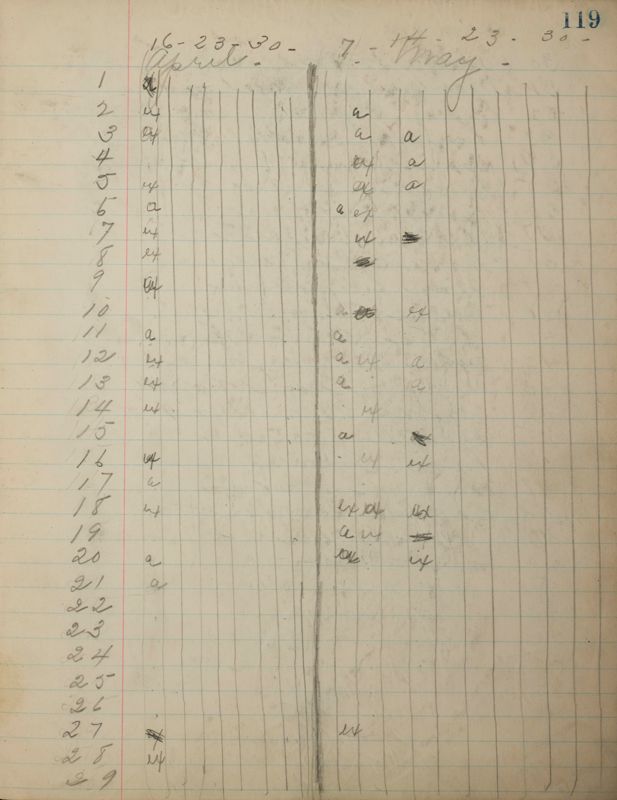 119
16 - 23 - 30 - 7 - 14 - 23 - 30 -
April - May -
1 a
2 ex a
3 ex a a
4 ex a
5 ex ex a
6 a a ex
7 ex ex
8 ex
9 ex
10 ex
11 a a
12 ex a ex a
13 ex a a
14 ex ex
15 a
16 ex ex ex
17 a
18 ex ex ex ex
19 a ex
20 a ex
21 a
22
23
24
25
26
27 ex
28 ex
29